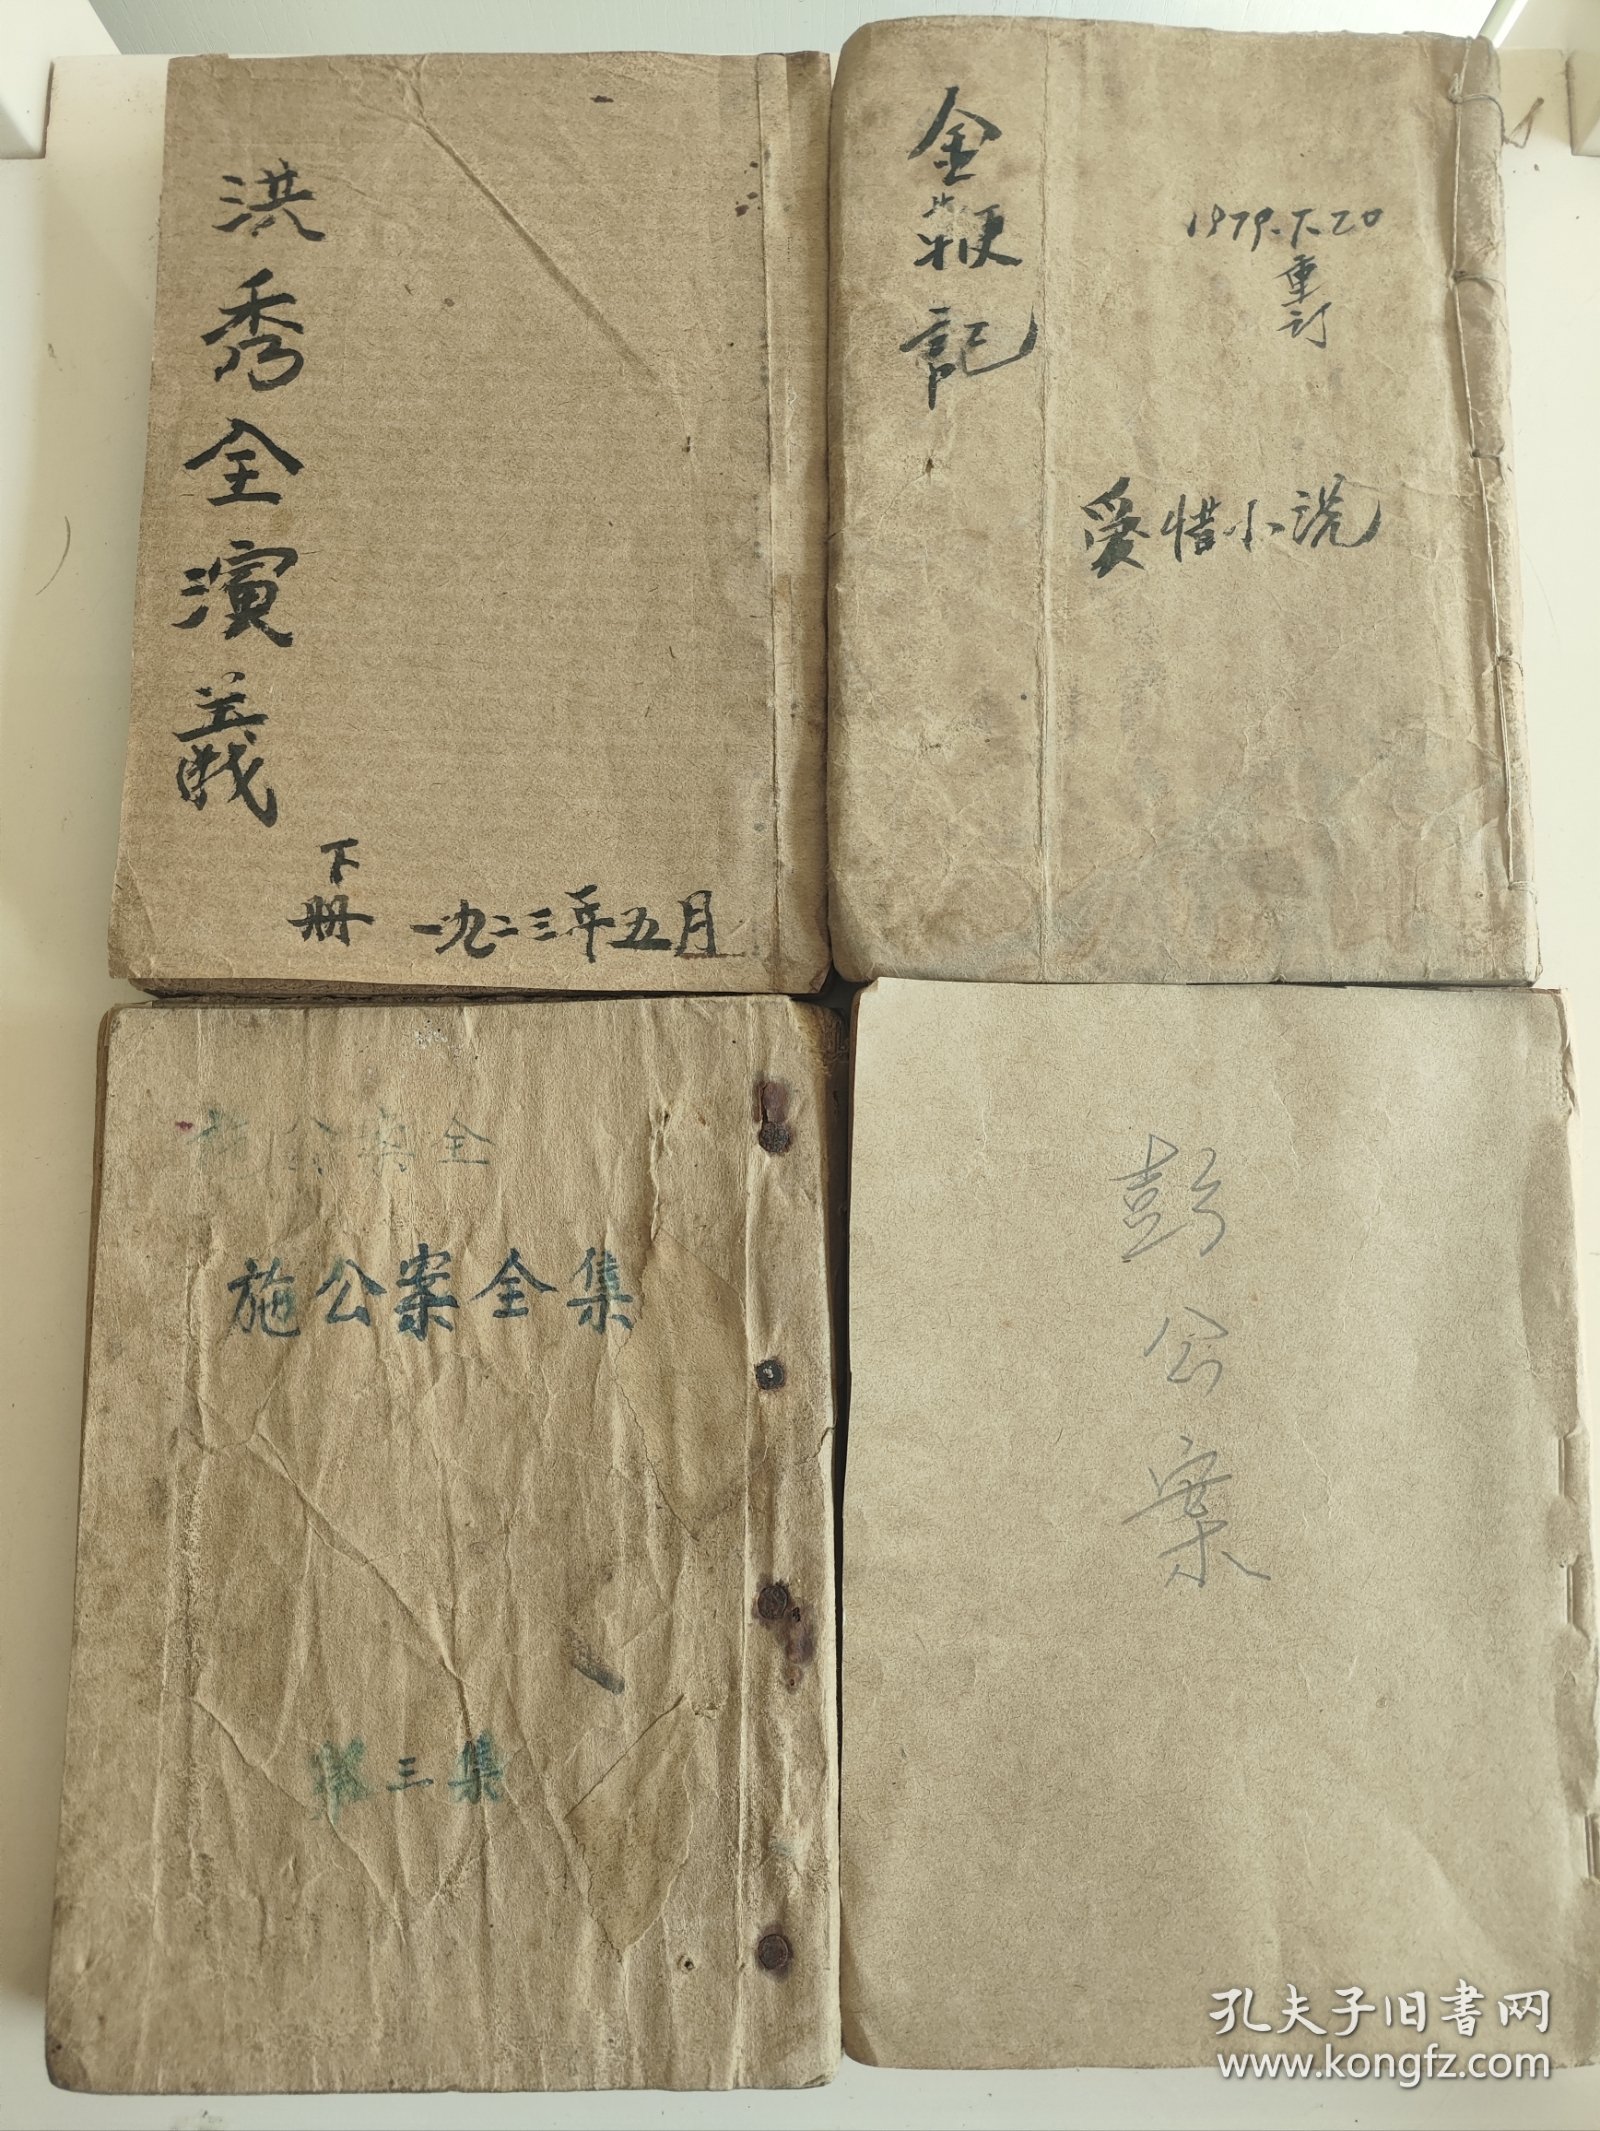 洪秀全演義
下册
一九二三年五月
金鞭記
1979.7.20
重订
爱惜小说
施公案全
施公案全集
第三集
彭公案
孔夫子旧书网
www.kongfz.com